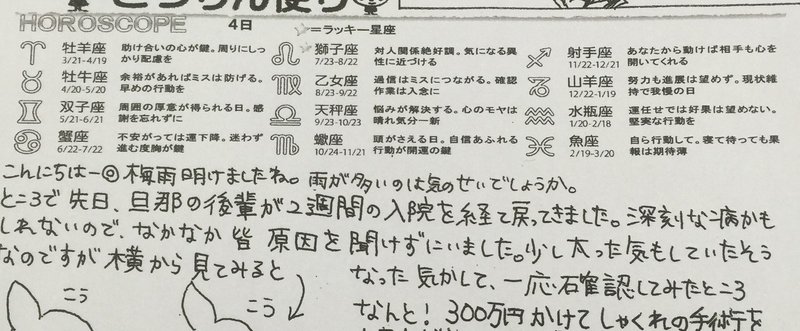 HOROSCOPE
4日
☆=ラッキー星座
牡羊座 3/21-4/19
助け合いの心が鍵。周りにしっかり配慮を
牡牛座 4/20-5/20
余裕があればミスは防げる。早めの行動を
双子座 5/21-6/21
周囲の厚意が得られる日。感謝を忘れずに
蟹座 6/22-7/22
不安がっては運下降。迷わず進む度胸が鍵
獅子座 7/23-8/22
対人関係絶好調。気になる異性に近づける
乙女座 8/23-9/22
過信はミスにつながる。確認作業は入念に
天秤座 9/23-10/23
悩みが解決する。心のモヤは晴れ気分一新
蠍座 10/24-11/21
頭がさえる日。自信あふれる行動が開運の鍵
射手座 11/22-12/21
あなたから動けば相手も心を開いてくれる
山羊座 12/22-1/19
努力も進展は望めず。現状維持で我慢の日
水瓶座 1/20-2/18
運任せでは好果は望めない。堅実な行動を
魚座 2/19-3/20
自ら行動して。寝て待っても果報は期待薄
こんにちはー 梅雨明けましたね。雨が多いのは気のせいでしょうか。
ところで先日、旦那の後輩が2週間の入院を経て戻ってきました。深刻な病かも
しれないので、なかなか皆 原因を聞けずにいました。少し太った気もしていたそう
なのですが横から見てみると
なった気がして、一応確認してみたところ
なんと! 300万円かけてしゃくれの手術を
こう
こう